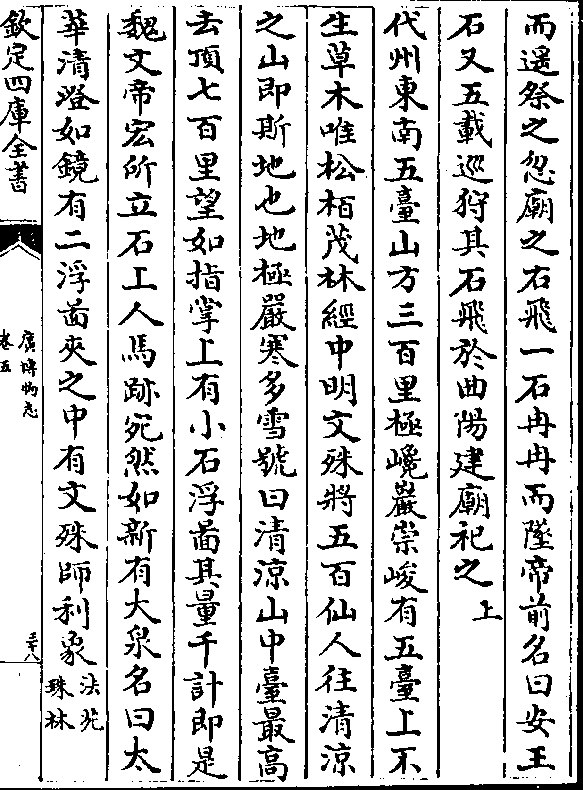 而遥祭之忽廟之右飛一石冉冉而墜帝前名曰安王
石又五載巡狩其石飛於曲陽建廟祀之上
代州東南五臺山方三百里極巉巖崇峻有五臺上不
生草木唯松栢茂林經中明文殊將五百仙人往清涼
之山即斯地也地極嚴寒多雪號曰清涼山中臺最高
去頂七百里望如指掌上有小石浮啚其量千計即是
魏文帝宏所立石工人馬跡宛然如新有大泉名曰太
華清澄如鏡有二浮啚夾之中有文殊師利象法苑
珠林
欽定四庫全書
廣博物志
卷五
三十八